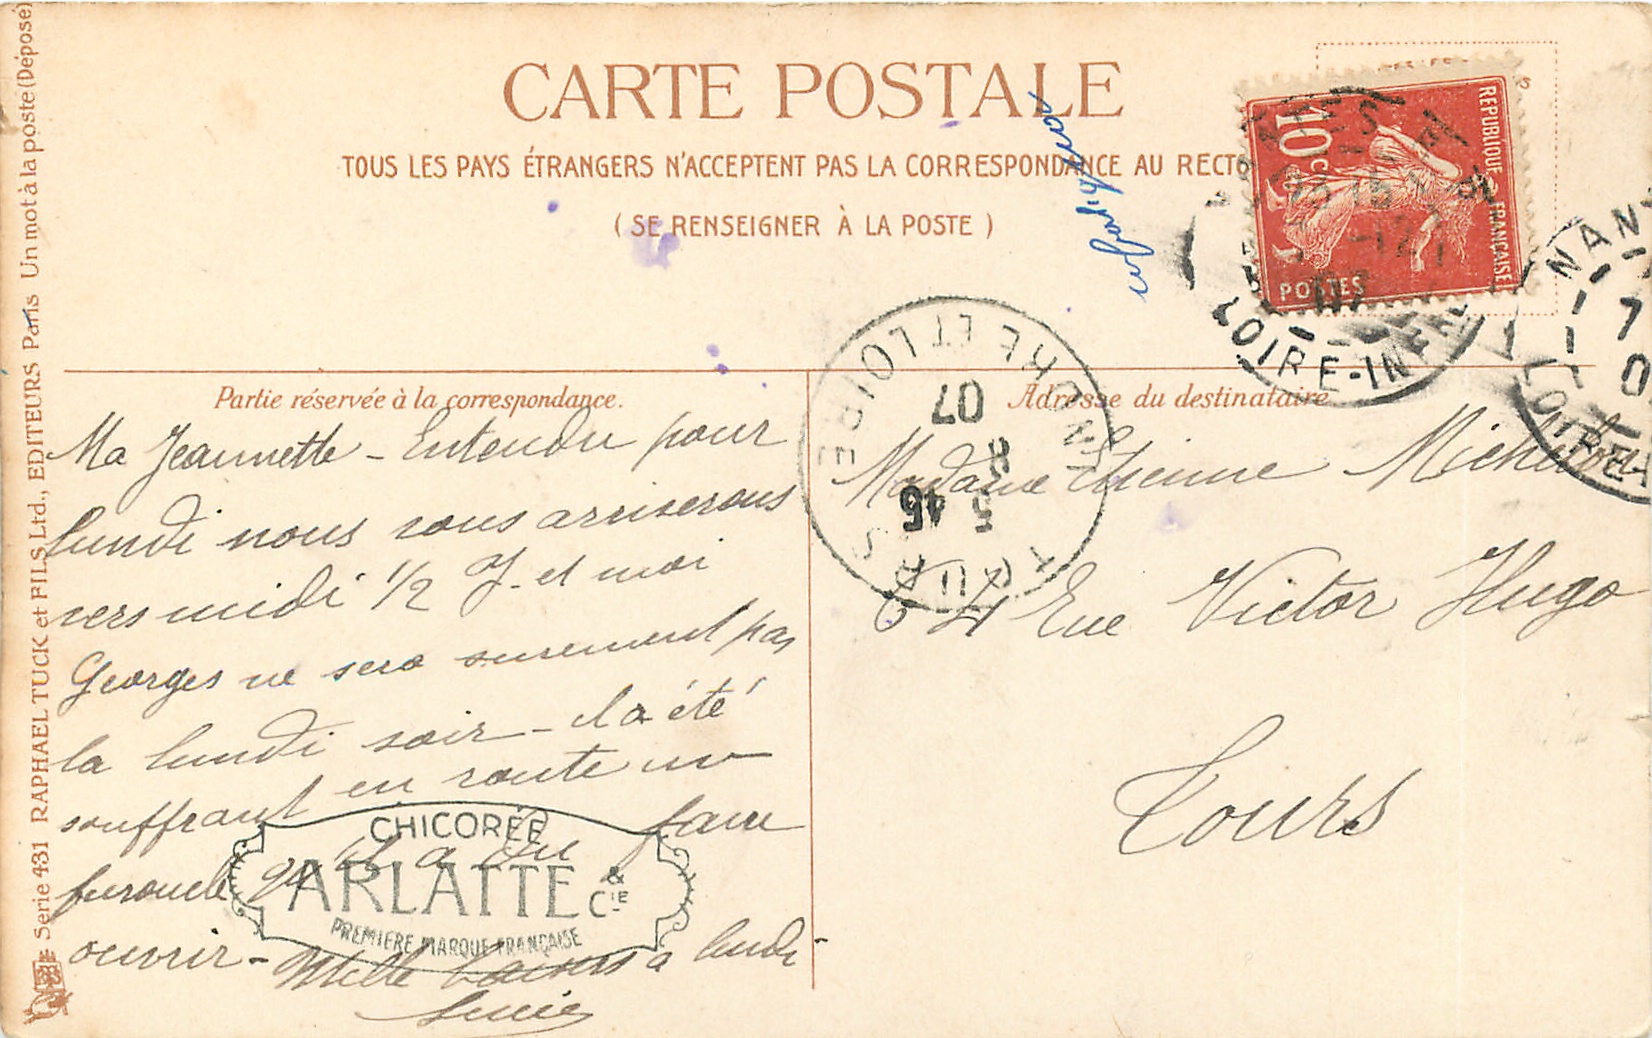 CARTE POSTALE
TOUS LES PAYS ÉTRANGERS N'ACCEPTENT PAS LA CORRESPONDANCE AU RECTO
( SE RENSEIGNER À LA POSTE )
REPUBLIQUE FRANÇAISE
10 C
POSTES
LOIRE-INF
NAN
7
0
LOIRE-
TOURS
INDRE ET LOIRE
5 45
8
07
Partie réservée à la correspondance.
Ma Jeannette - Entendu pour
lundi nous vous arriserons
vers midi 1/2 J. et moi
Georges ne sera surement pas
la lundi soir - il a été
souffrant en route un
furoncle qu'il a du faire
ouvrir - Mille baisers a lundi
Lucie
CHICORÉE
ARLATTE & CIE
PREMIÈRE MARQUE FRANÇAISE
Adresse du destinataire
Madame Etienne
64 Rue Victor Hugo
Tours
Serie 431 RAPHAEL TUCK et FILS Ltd., EDITEURS Paris Un mot à la poste (Déposé)